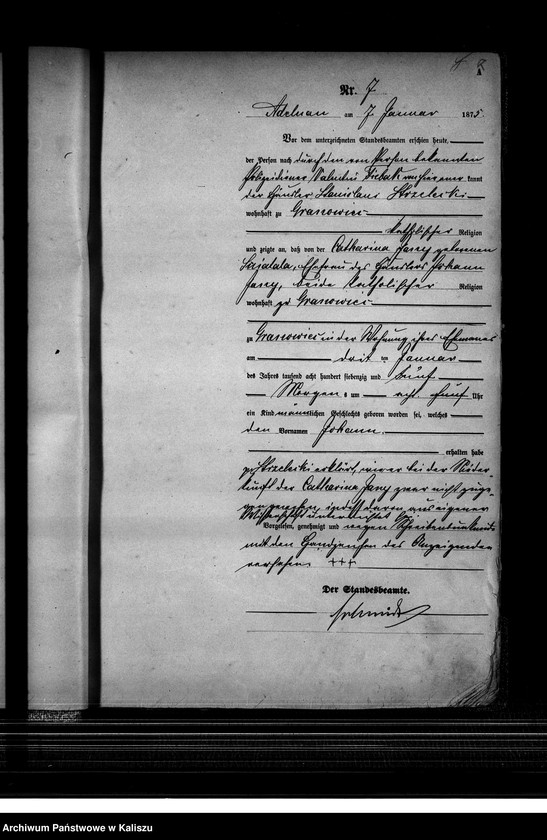 Nr. 7
Adelnau am 7 Januar 1875
Vor dem unterzeichneten Standesbeamten erschien heute,
der Person nach durch den von Person bekannten
Polizeidiener Valentin anerkannt
der Häusler Stanislaus Strzelecki
wohnhaft zu Granowiec
katholischer Religion
und zeigte an, daß von der Catharina Jany geborenen
Ehefrau des Häuslers Johann
Jany, beide katholischer Religion
wohnhaft zu Granowiec
zu Granowiec in der Wohnung ihres Ehemannes
am dritten Januar
des Jahres tausend acht hundert siebenzig und fünf
Morgens um fünf Uhr
ein Kind männlichen Geschlechts geboren worden sei, welches
den Vornamen Johann
erhalten habe
Strzelecki erklärt, er bei der Nieder-
kunft der Catharina Jany zwar nicht zuge-
gen gewesen, indeß davon aus eigener
Wissenschaft unterrichtet sei
Vorgelesen, genehmigt und wegen
mit den Handzeichen des Anzeigenden
versehen +++
Der Standesbeamte.
Schmidt
Archiwum Państwowe w Kaliszu